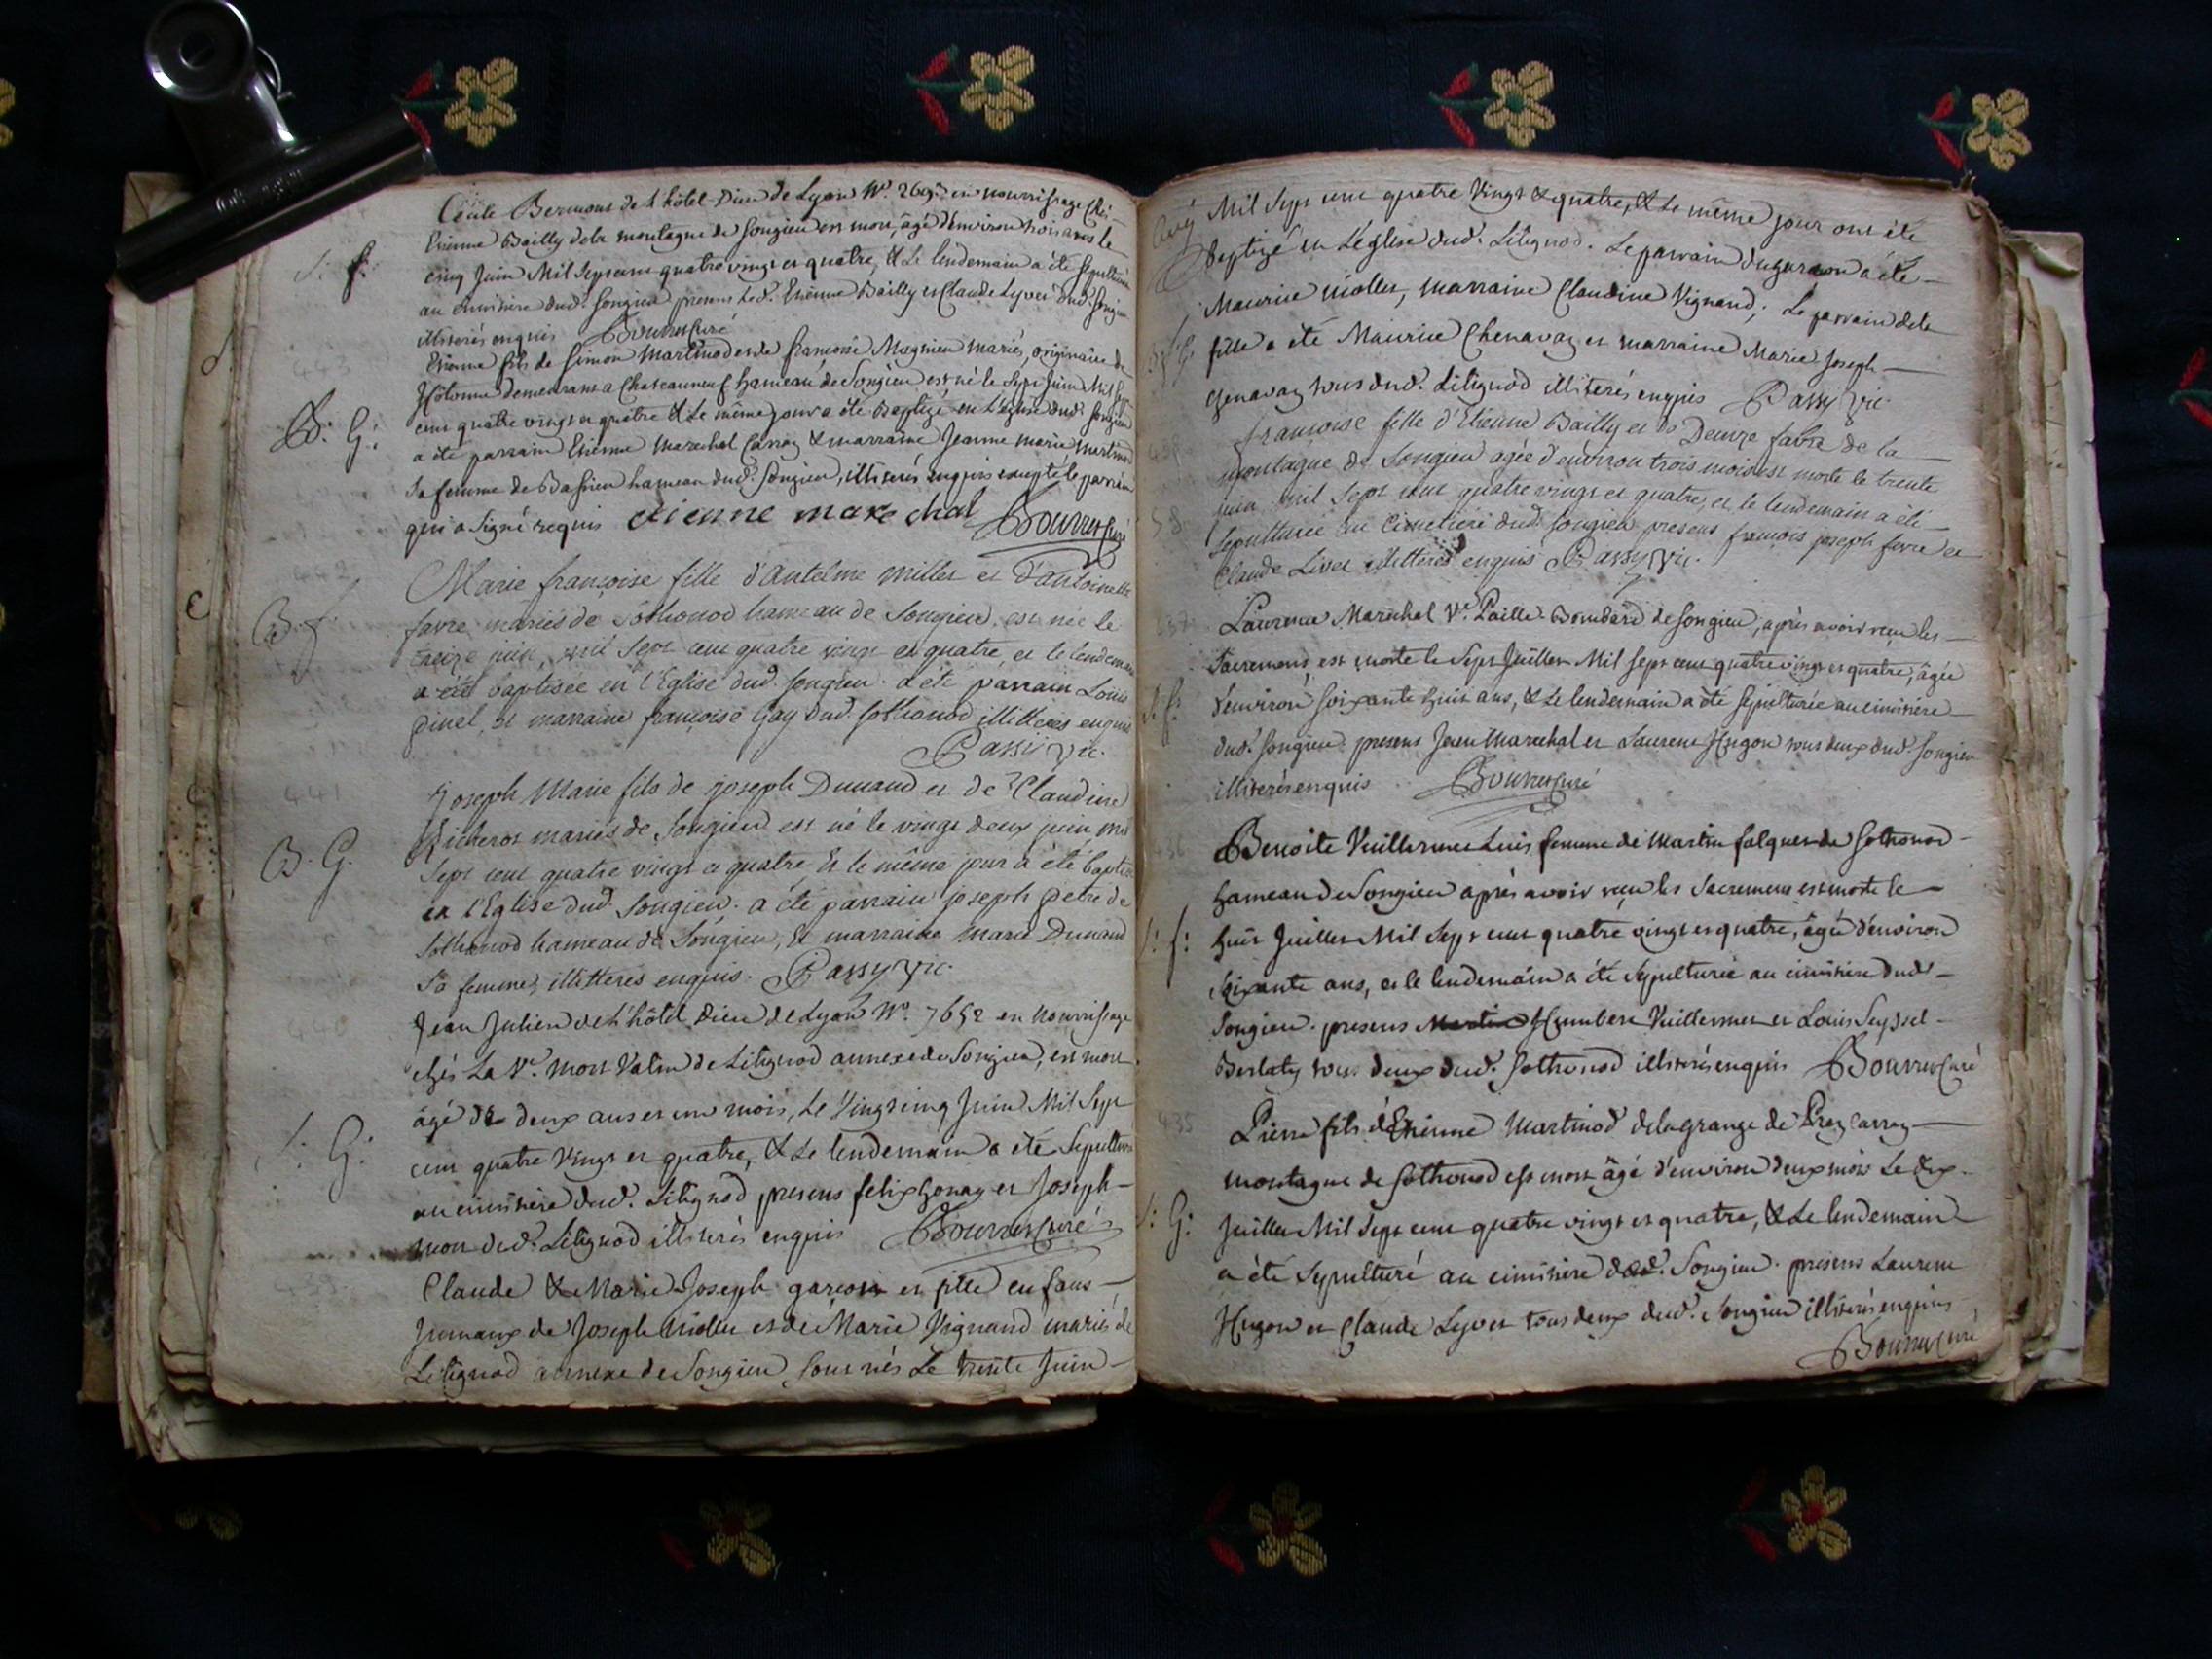 Cecile Bermont de l'hôtel-Dieu de Lyon N.º 269 en nourrissage chés
Etienne Bailly dela montagne de Songieu est mort, âgé d'environ trois ans le
S: f: cinq Juin Mil Sept cent quatre vingt et quatre, & Le lendemain a été Sepulturé
au cimitiere dud. Songieu presens Led. Etienne Bailly et Claude Lyvet dud. Songieu
illiterés enquis Bouvret Curé
443
Etienne fils de Simon Martinod et de françoise Magnien mariés, originaire de
Hotonne demeurans a Chateauneuf hameau de Songieu est né le Sept Juin Mil Sept
B: G: cent quatre vingt et quatre & Le même jour a été Baptizé en L'eglise dud. Songieu
a été parrain Etienne Marechal Carraz & marraine Jeanne Marie Martinod
Sa femme de Bassieu hameau dud. Songieu, illiterés enquis excepté le parrain
qui a Signé requis etienne mare chal Bouvret Curé
442
Marie françoise fille d'Antelme Millet et d'antoinette
B. f favre mariés de Sothonod hameau de Songieu, est née le
treize juin, mil Sept cent quatre vingt et quatre, et le lendemain
a été baptisée en l'Eglise dud. Songieu. a été parrain Louis
pinel, et marraine françoise Gay dud. Sothonod illitteres enquis
Passy vic.
441
Joseph Marie fils de joseph Dunand et de Claudine
Richerot mariés de Songieu est né le vingt deux juin mil
B. G. Sept cent quatre vingt et quatre, Et le même jour a été baptisé
en l'Eglise dud. Songieu. a été parrain joseph petre de
Sothonod hameau de Songieu, Et marraine Marie Dunand
Sa femme, illitteres enquis. Passy vic.
440
Jean Julien de L'hôtel Dieu de Lyon N.º 7652 en Nourrissage
chés La V.e Mort Valin de Lilignod annexe de Songieu, est mort
âgé de deux ans et un mois, Le Vingt cinq Juin Mil Sept
S: G: cent quatre Vingt et quatre, & Le lendemain a été Sepulturé
au cimitiere dud. Lilignod presens felix gonay et Joseph
mort dud. Lilignod illiterés enquis Bouvret Curé
439
Claude & Marie Joseph garcon et fille enfans
Jumaux de Joseph Miollet et de Marie Vignand mariés de
Lilignod annexe de Songieu Sont nés Le trente Juin
Mil Sept cent quatre Vingt & quatre, & Le même jour ont été
baptizé en L'eglise dud. Lilignod. Le parrain du garcon a été
Maurice Miollet, marraine Claudine Vignand; Le parrain dela
fille a été Maurice Chenavaz et marraine Marie Joseph
Chenavaz tous dud. Lilignod illiterés enquis Passy vic.
françoise fille d'Etienne Bailly et de Denize favre de la
montagne de Songieu agée d'environ trois mois est morte le trente
juin mil Sept cent quatre vingt et quatre, et le lendemain a été
Sepulturée au Cimetiere dud. Songieu, presens françois joseph favre et
Claude Livet illitteres enquis Passy vic.
437
Laurence Marechal V.e Paillet Bombard de Songieu, après avoir reçu les
Sacremens, est morte le Sept Juillet Mil Sept cent quatre vingt et quatre, âgée
S: f: d'environ Soixante huit ans, & Le lendemain a été Sepulturée au cimitiere
dud. Songieu. presens Jean Marechal et Laurent Hugon tous deux dud. Songieu
illiterés enquis Bouvret Curé
436
Benoite Vuillermet Luis femme de Martin falquet de Sothonod
hameau de Songieu après avoir reçu les Sacremens est morte le
S: f: huit Juillet Mil Sept cent quatre vingt et quatre, âgée d'environ
Soixante ans, et le lendemain a été Sepulturée au cimitiere dud.
Songieu. presens Martin Humbert Vuillermet et Louis Seyssel
Berlaty tous deux dud. Sothonod illiterés enquis Bouvret Curé
435
Pierre fils d'Etienne Martinod dela grange de Prez Carraz
montagne de Sothonod est mort âgé d'environ deux mois Le dix
S: G: Juillet Mil Sept cent quatre vingt et quatre, & Le lendemain
a été Sepulturé au cimitiere dud. Songieu. presens Laurent
Hugon et Claude Lyvet tous deux dud. Songieu illiterés enquis
Bouvret Curé